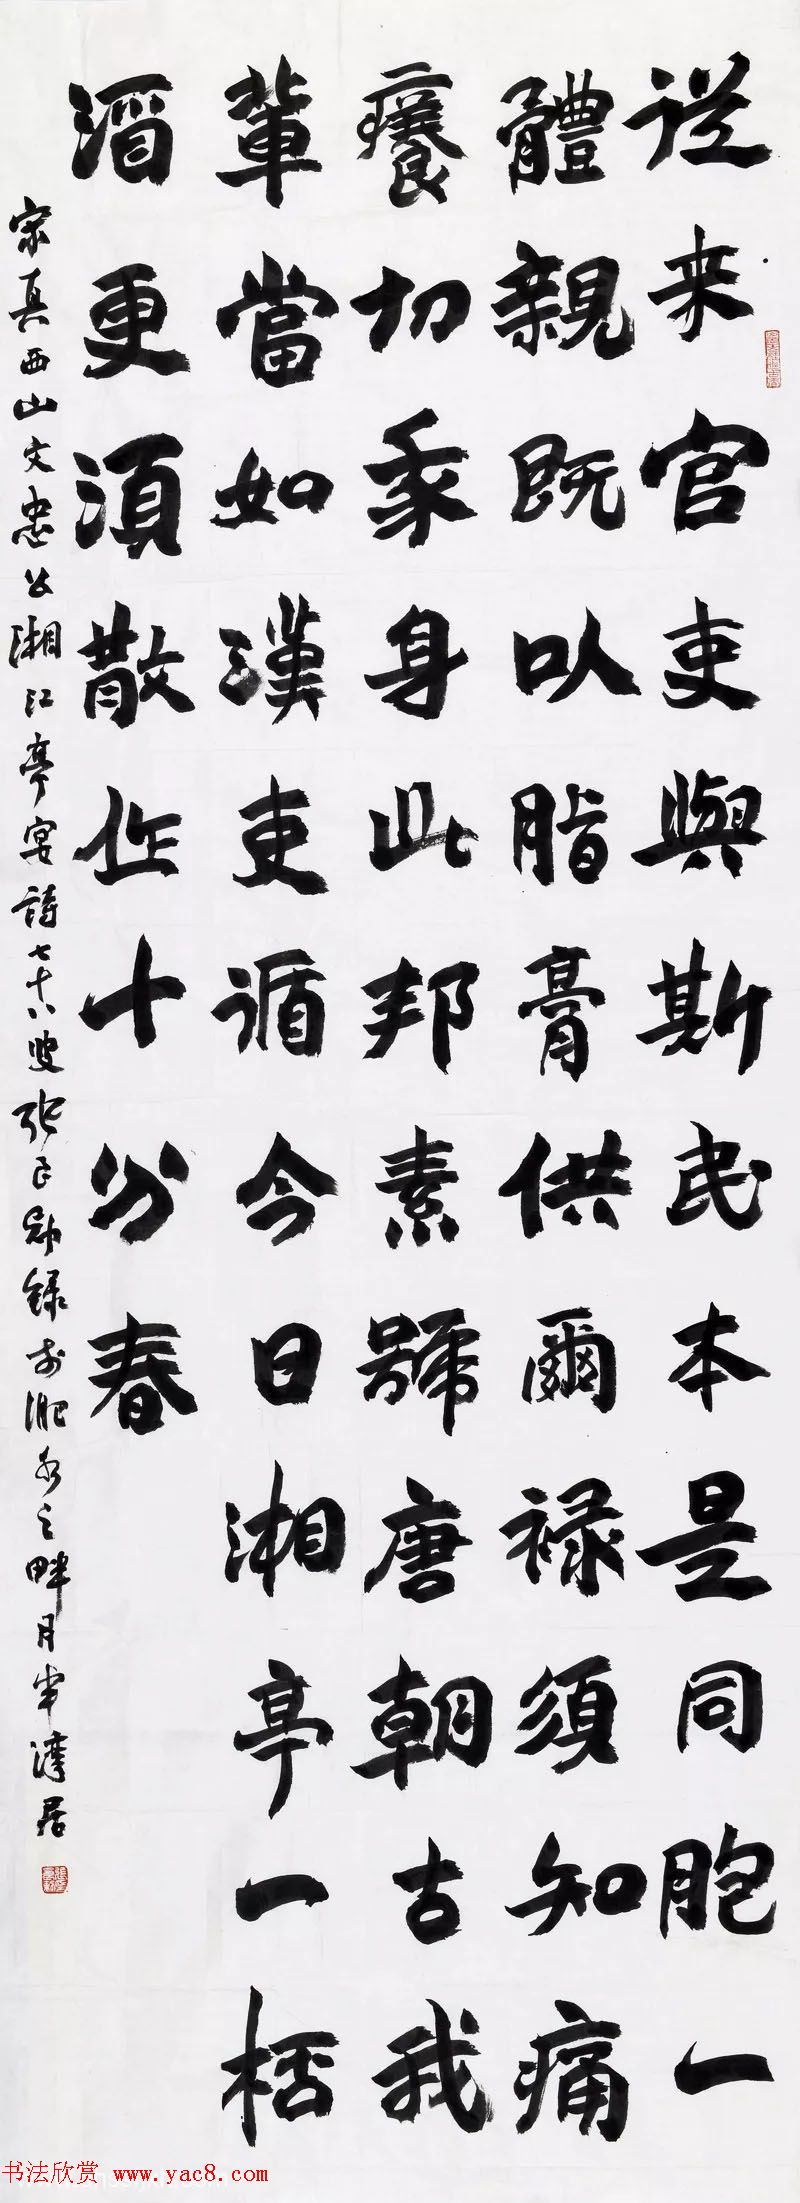 從来官吏與斯民本是同胞一
體親既以脂膏供爾禄須知痛
癢切身此邦素號唐朝古我
輩當如漢吏循今日湘亭一桮
酒更須散作十分春
宋真西山文忠公湘江亭宴詩七十八叟張良勛録於淝水之畔月半灣居
书法欣赏 www.yac8.com